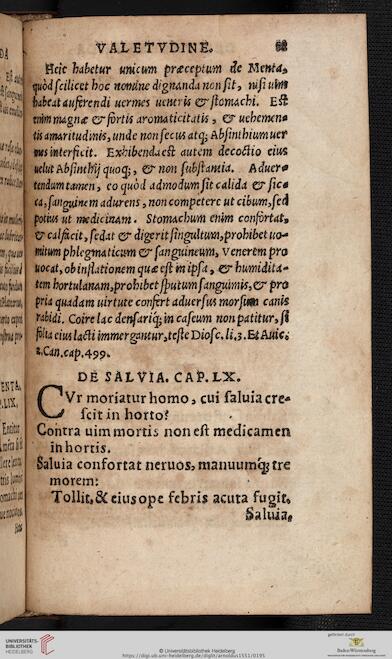 VALETVDINE. 68
Heic habetur unicum præceptum de Menta,
quòd scilicet hoc nomine dignanda non sit, nisi uim
habeat auferendi uermes uentris & stomachi. Est
enim magnæ & fortis aromaticitatis, & uehemen-
tis amaritudinis, unde non secus atq; Absinthium uer
mes interficit. Exhibenda est autem decoctio eius
uelut Absinthij quoq;, & non substantia. Aduer-
tendum tamen, eo quòd admodum sit calida & sic-
ca, sanguinem adurens, non competere ut cibum, sed
potius ut medicinam. Stomachum enim confortat,
& calfacit, sedat & digerit singultum, prohibet uo-
mitum phlegmaticum & sanguineum, Venerem pro
uocat, ob inflationem quæ est in ipsa, & humidita-
tem hortulanam, prohibet sputum sanguinis, & pro
pria quadam uirtute confert aduersus morsum canis
rabidi. Coire lac densariq; in caseum non patitur, si
folia eius lacti immergantur, teste Diosc. li. 3. Et Auic.
2. Can. cap. 499.
DE SALVIA. CAP. LX.
CVr moriatur homo, cui saluia cre-
scit in horto?
Contra uim mortis non est medicamen
in hortis.
Saluia confortat neruos, manuumq; tre
morem:
Tollit, & eius ope febris acuta fugit.
Saluia,
UNIVERSITÄTS-
BIBLIOTHEK
HEIDELBERG
© Universitätsbibliothek Heidelberg
https://digi.ub.uni-heidelberg.de/diglit/arnoldus1551/0195
gefördert durch
Baden-Württemberg